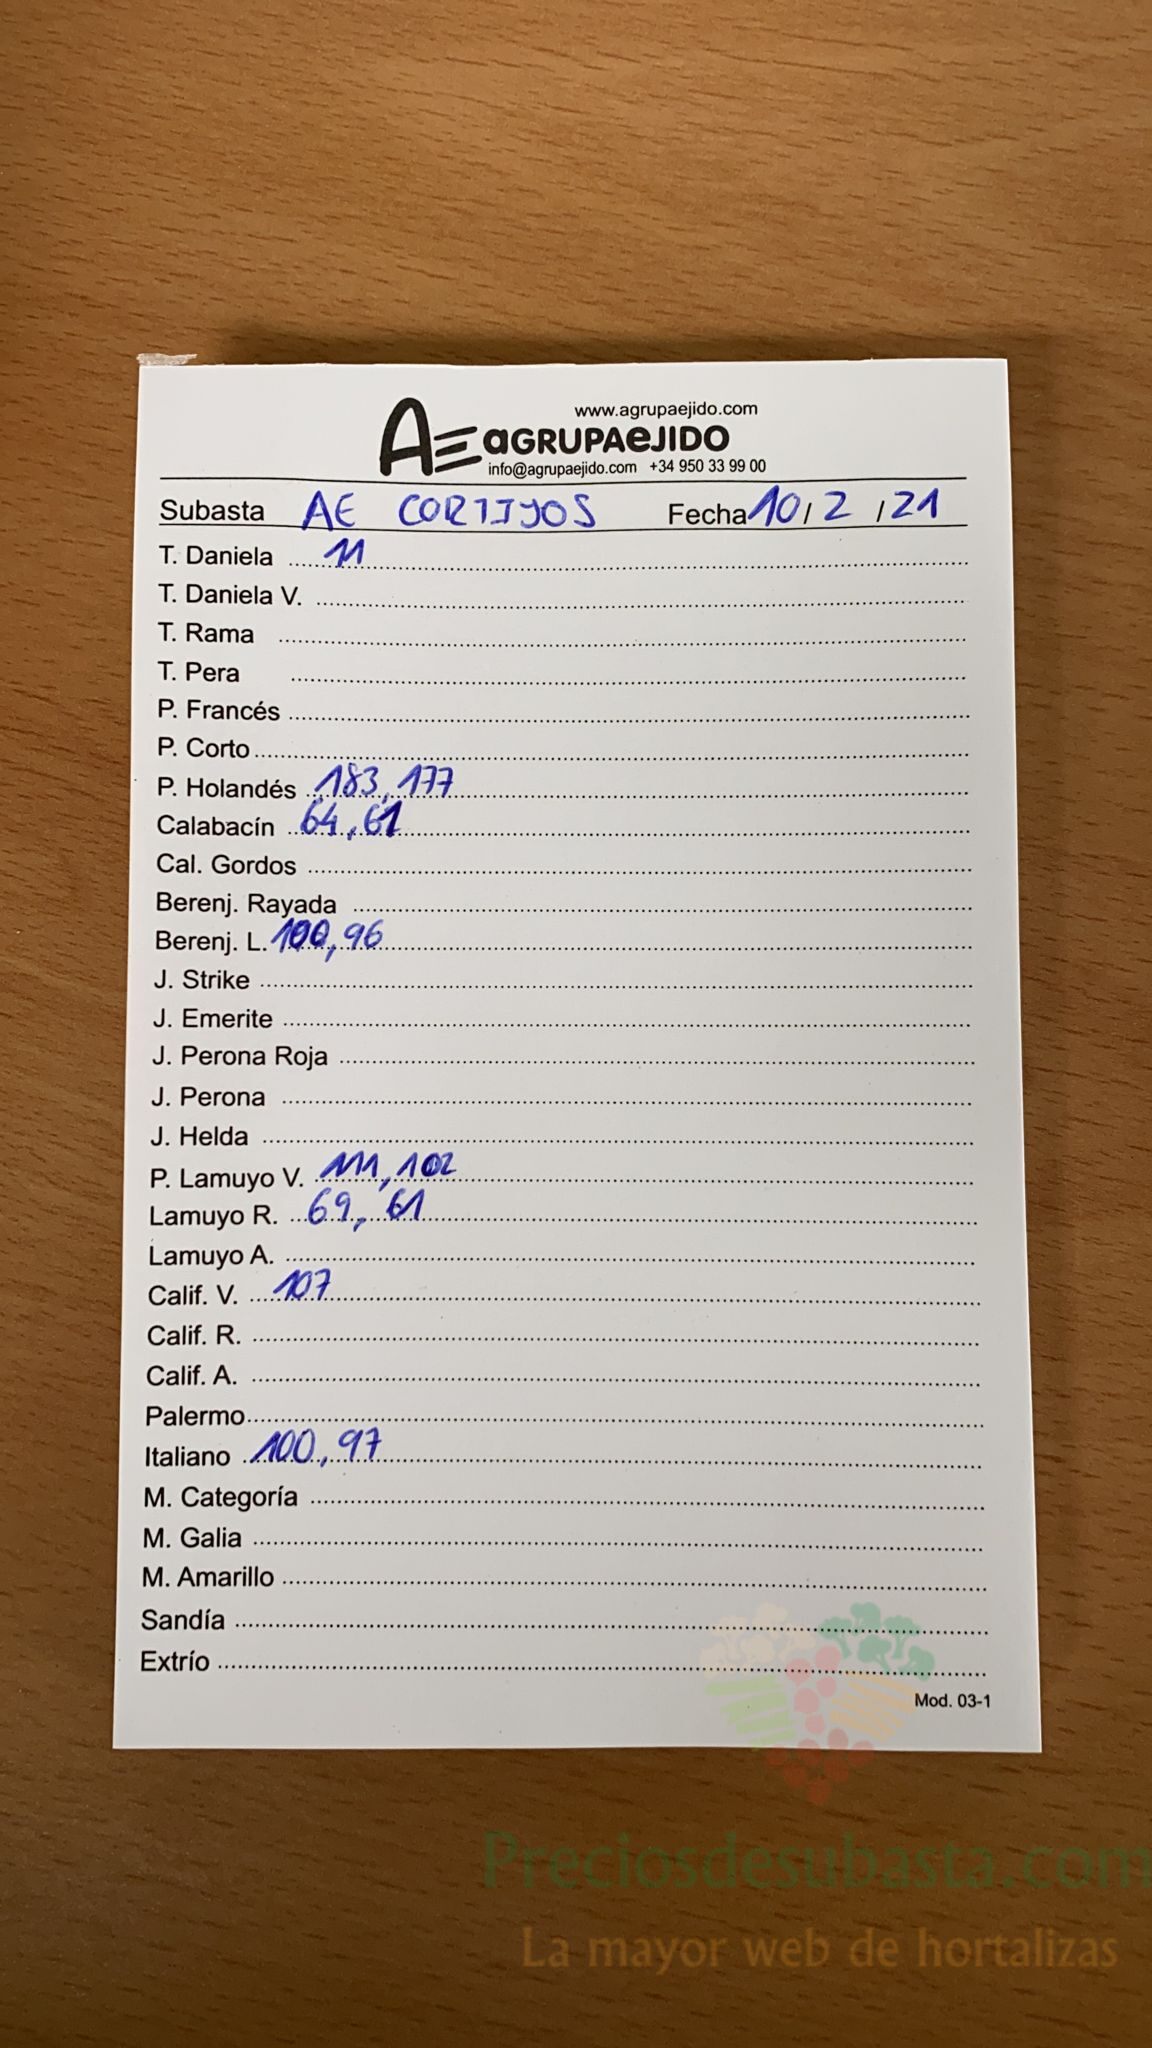 www.agrupaejido.com
AE aGRUPAeJIDO
info@agrupaejido.com +34 950 33 99 00
Subasta AE CORTIJOS Fecha 10/2/21
T. Daniela 11
T. Daniela V.
T. Rama
T. Pera
P. Francés
P. Corto
P. Holandés 183, 177
Calabacín 64, 61
Cal. Gordos
Berenj. Rayada
Berenj. L. 100, 96
J. Strike
J. Emerite
J. Perona Roja
J. Perona
J. Helda
P. Lamuyo V. 111, 102
Lamuyo R. 69, 61
Lamuyo A.
Calif. V. 107
Calif. R.
Calif. A.
Palermo
Italiano 100, 97
M. Categoría
M. Galia
M. Amarillo
Sandía
Extrío
Mod. 03-1
Preciosdesubasta.com
La mayor web de hortalizas